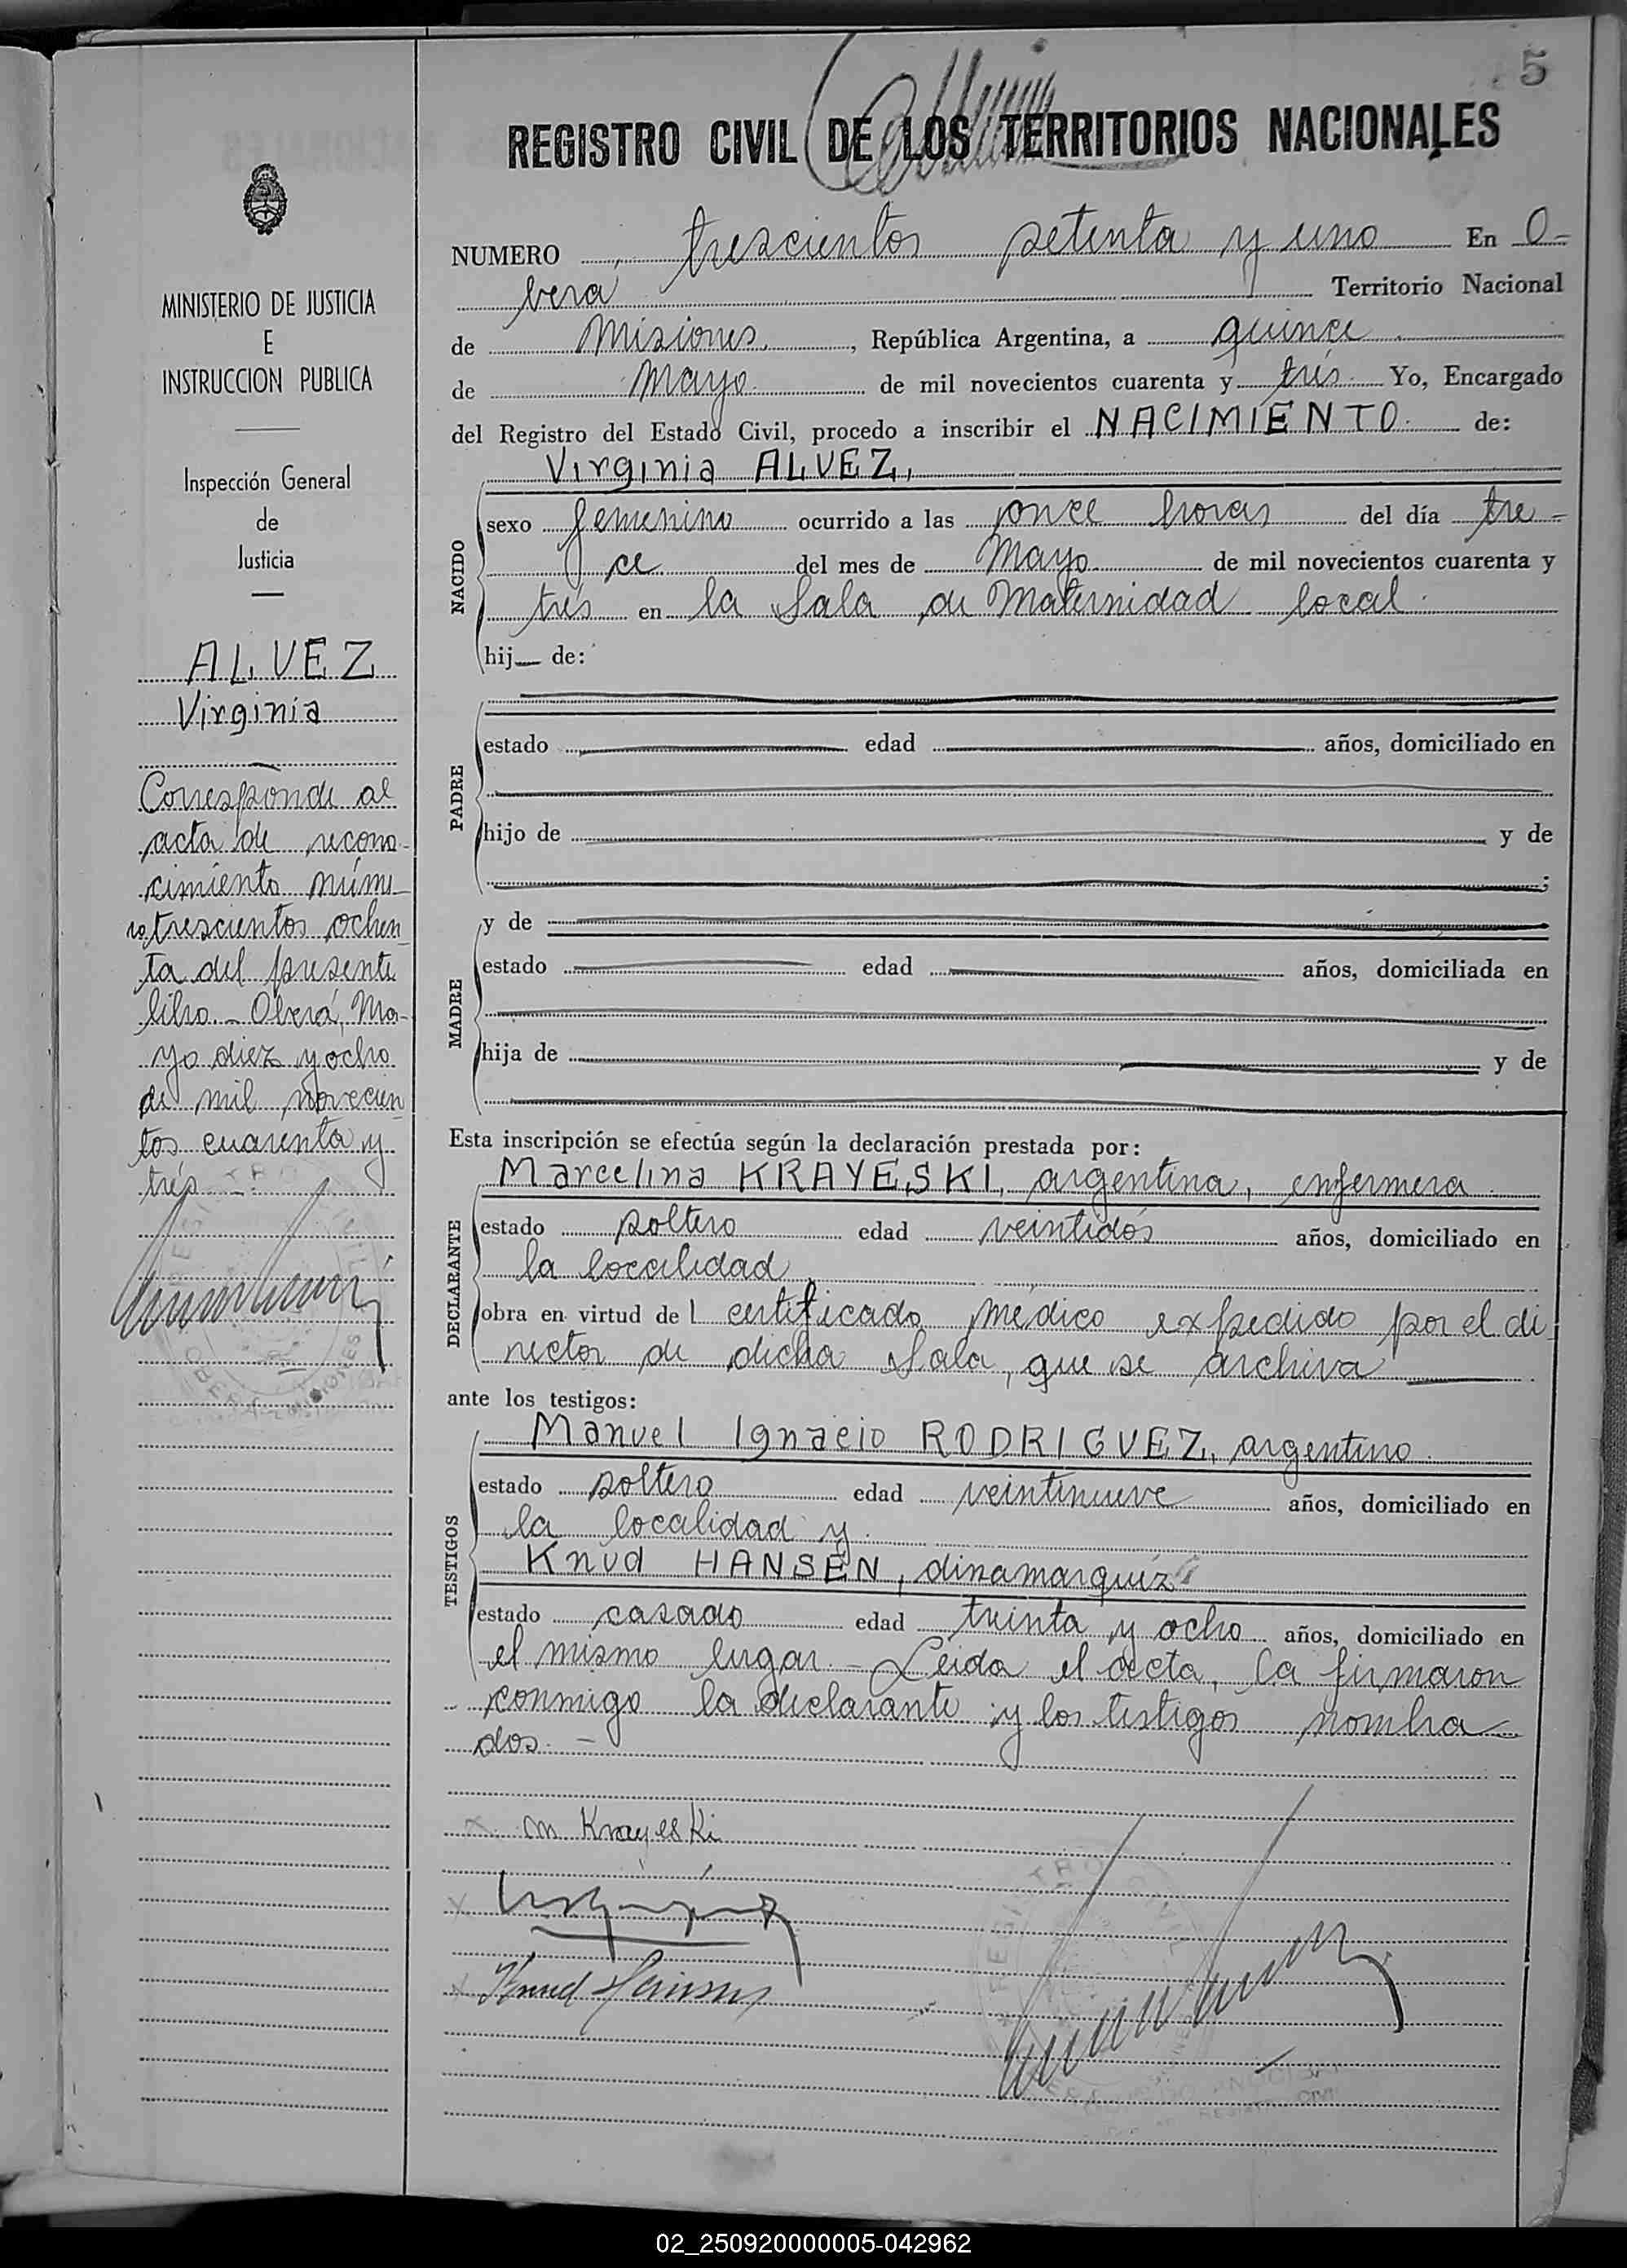 5
REGISTRO CIVIL DE LOS TERRITORIOS NACIONALES
MINISTERIO DE JUSTICIA
E
INSTRUCCION PUBLICA
Inspección General
de
Justicia
ALVEZ
Virginia
Corresponde al
acta de recono-
cimiento núme-
ro trescientos ochen
ta del presente
libro.- Oberá, Ma-
yo diez y ocho
de mil novecien
tos cuarenta y
trés.-
NUMERO trescientos setenta y uno En O-
berá Territorio Nacional
de Misiones, República Argentina, a quince
de Mayo de mil novecientos cuarenta y trés Yo, Encargado
del Registro del Estado Civil, procedo a inscribir el NACIMIENTO de:
Virginia ALVEZ,
NACIDO
sexo femenino ocurrido a las once horas del día tre-
ce del mes de Mayo de mil novecientos cuarenta y
trés en la Sala de Maternidad local.
hij de:
PADRE
estado edad años, domiciliado en
hijo de y de
;
MADRE
y de
estado edad años, domiciliada en
hija de y de
Esta inscripción se efectúa según la declaración prestada por:
DECLARANTE
Marcelina KRAYESKI, argentina, enfermera
estado soltero edad veintidós años, domiciliado en
la localidad
obra en virtud de l certificado médico expedido por el di
rector de dicha Sala, que se archiva
ante los testigos:
TESTIGOS
Manuel Ignacio RODRIGUEZ, argentino
estado soltero edad veintinueve años, domiciliado en
la localidad y
Knud HANSEN, dinamarquéz
estado casado edad treinta y ocho años, domiciliado en
el mismo lugar.- Leída el acta, la firmaron
conmigo la declarante y los testigos nombra
dos.-
M Krayeski
Knud Hansen
REGISTRO CIVIL
OBERÁ MISIONES
02_250920000005-042962